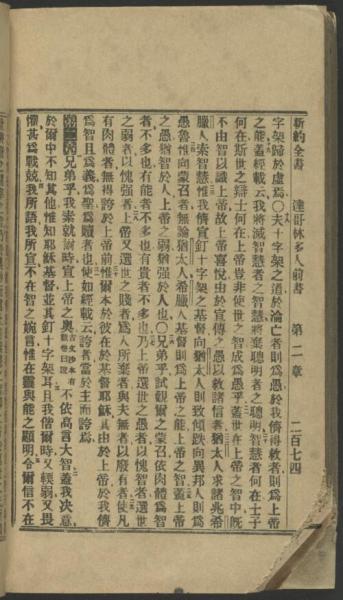 新約全書 達哥林多人前書 第二章 二百七四
字架歸於虛焉〇夫十字架之道於淪亡者則爲愚於我儕得救者則爲上帝
之能蓋經載云我將滅智慧者之智慧將棄聰明者之聰明智慧者何在士子
何在斯世之辯士何在上帝豈非使世之智成爲愚乎蓋世在上帝之智中既
不由智以識上帝故上帝喜悅由於宣傳之愚以救諸信者猶太人求諸兆希
臘人索智慧惟我儕宣釘十字架之基督向猶太人則致傾跌向異邦人則爲
愚魯惟向蒙召者無論猶太人希臘人基督則爲上帝之能上帝之智蓋上帝
之愚猶智於人上帝之弱猶强於人也〇兄弟乎試觀爾之蒙召依肉體爲智
者不多也有能者不多也有貴者不多也乃上帝選世之愚者以愧智者選世
之弱者以愧强者上帝又選世之賤者爲人所棄者與夫無者以廢有者使凡
有肉體者無得誇於上帝前惟爾本於彼在於基督耶穌其由於上帝於我儕
爲智且爲義爲聖爲贖者也使如經載云誇者當於主而誇焉
第二章 兄弟乎我素就爾時宣上帝之奧古文抄本有數卷曰證不依高言大智蓋我決意
於爾中不知其他惟知耶穌基督並其釘十字架耳且我偕爾時又輭弱又畏
懼甚爲戰兢我所語我所宣不在智之婉言惟在靈與能之顯明令爾信不在